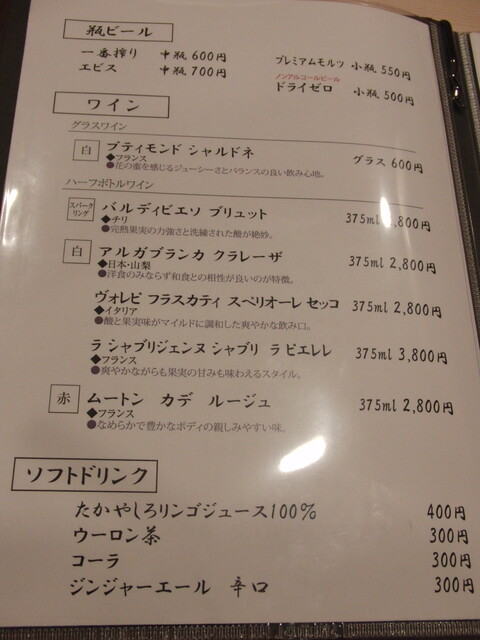 瓶ビール
一番搾り 中瓶 600円
エビス 中瓶 700円
プレミアムモルツ 小瓶 550円
ノンアルコールビール
ドライゼロ 小瓶 500円
ワイン
グラスワイン
白 プティモンド シャルドネ グラス 600円
◆フランス
●花の蜜を感じるジューシーさとバランスの良い飲み心地。
ハーフボトルワイン
スパークリング バルディビエソ ブリュット 375ml ,800円
◆チリ
●完熟果実の力強さと洗練された酸が絶妙。
白 アルガブランカ クラレーザ 375ml 2,800円
◆日本・山梨
●洋食のみならず和食との相性が良いのが特徴。
ヴォレビ フラスカティ スペリオーレ セッコ 375ml 2,800円
◆イタリア
●酸と果実味がマイルドに調和した爽やかな飲み口。
ラ シャブリジェンヌ シャブリ ラ ピエレレ 375ml 3,800円
◆フランス
●爽やかながらも果実の甘みも味わえるスタイル。
赤 ムートン カデ ルージュ 375ml 2,800円
◆フランス
●なめらかで豊かなボディの親しみやすい味。
ソフトドリンク
たかやしろリンゴジュース100% 400円
ウーロン茶 300円
コーラ 300円
ジンジャーエール 辛口 300円